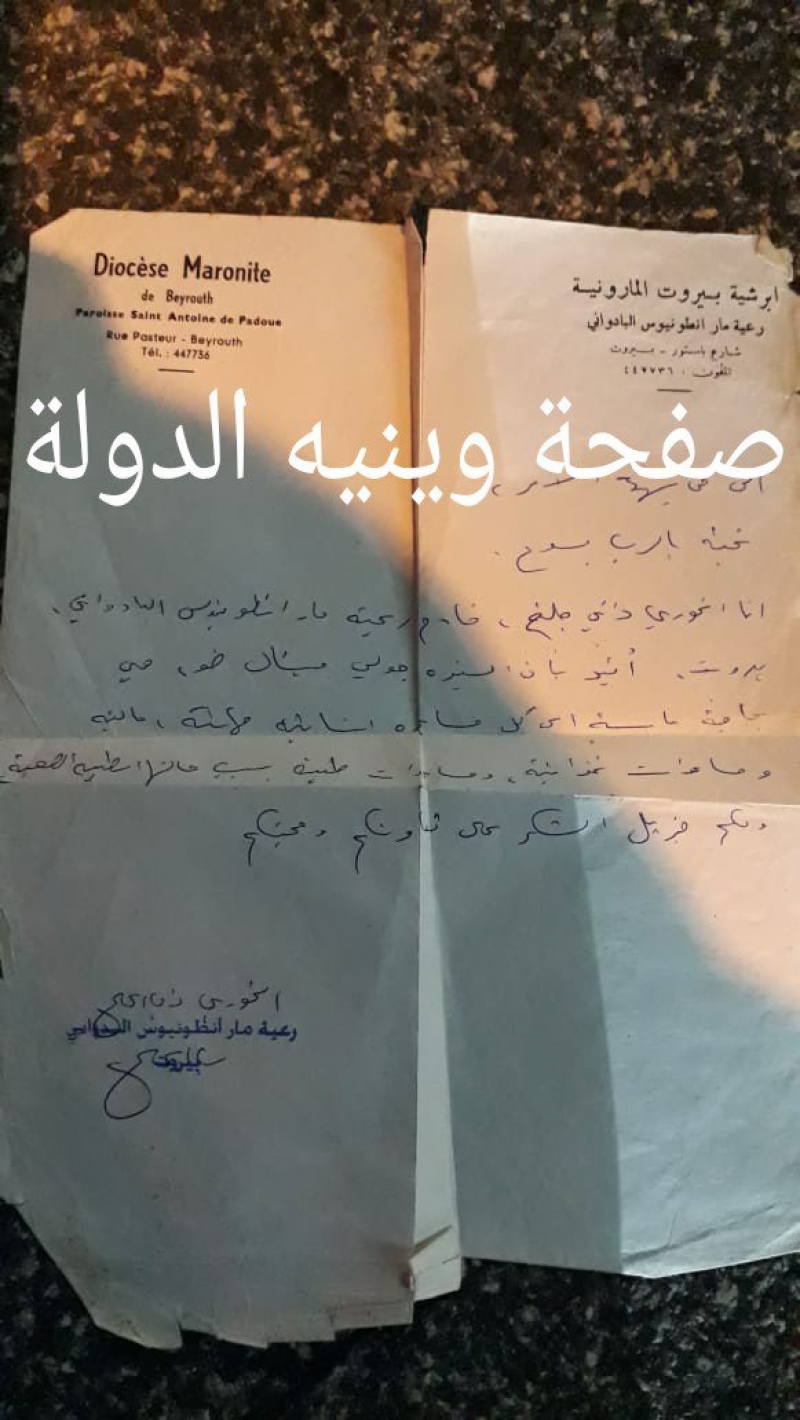 Diocèse Maronite
de Beyrouth
Paroisse Saint Antoine de Padoue
Rue Pasteur - Beyrouth
Tél. : 447736
ابرشية بيروت المارونية
رعية مار انطونيوس البادواني
شارع باستور - بيروت
تلفون : ٤٤٧٧٣٦
صفحة وينيه الدولة
الى من يهمه الامر،
تحية بالرب يسوع.
انا الخوري داني جلخ، خادم رعية مار انطونيوس البادواني،
بيروت، أفيد بأن السيدة جولي ميشال ضو، هي
بحاجة ماسة الى كل مساعدة انسانية ممكنة، مالية
ومساعدات غذائية، ومساعدات طبية بسبب حالتها الصعبة
ولكم جزيل الشكر على تعاونكم ومحبتكم
الخوري داني
رعية مار أنطونيوس البدواني
بيروت